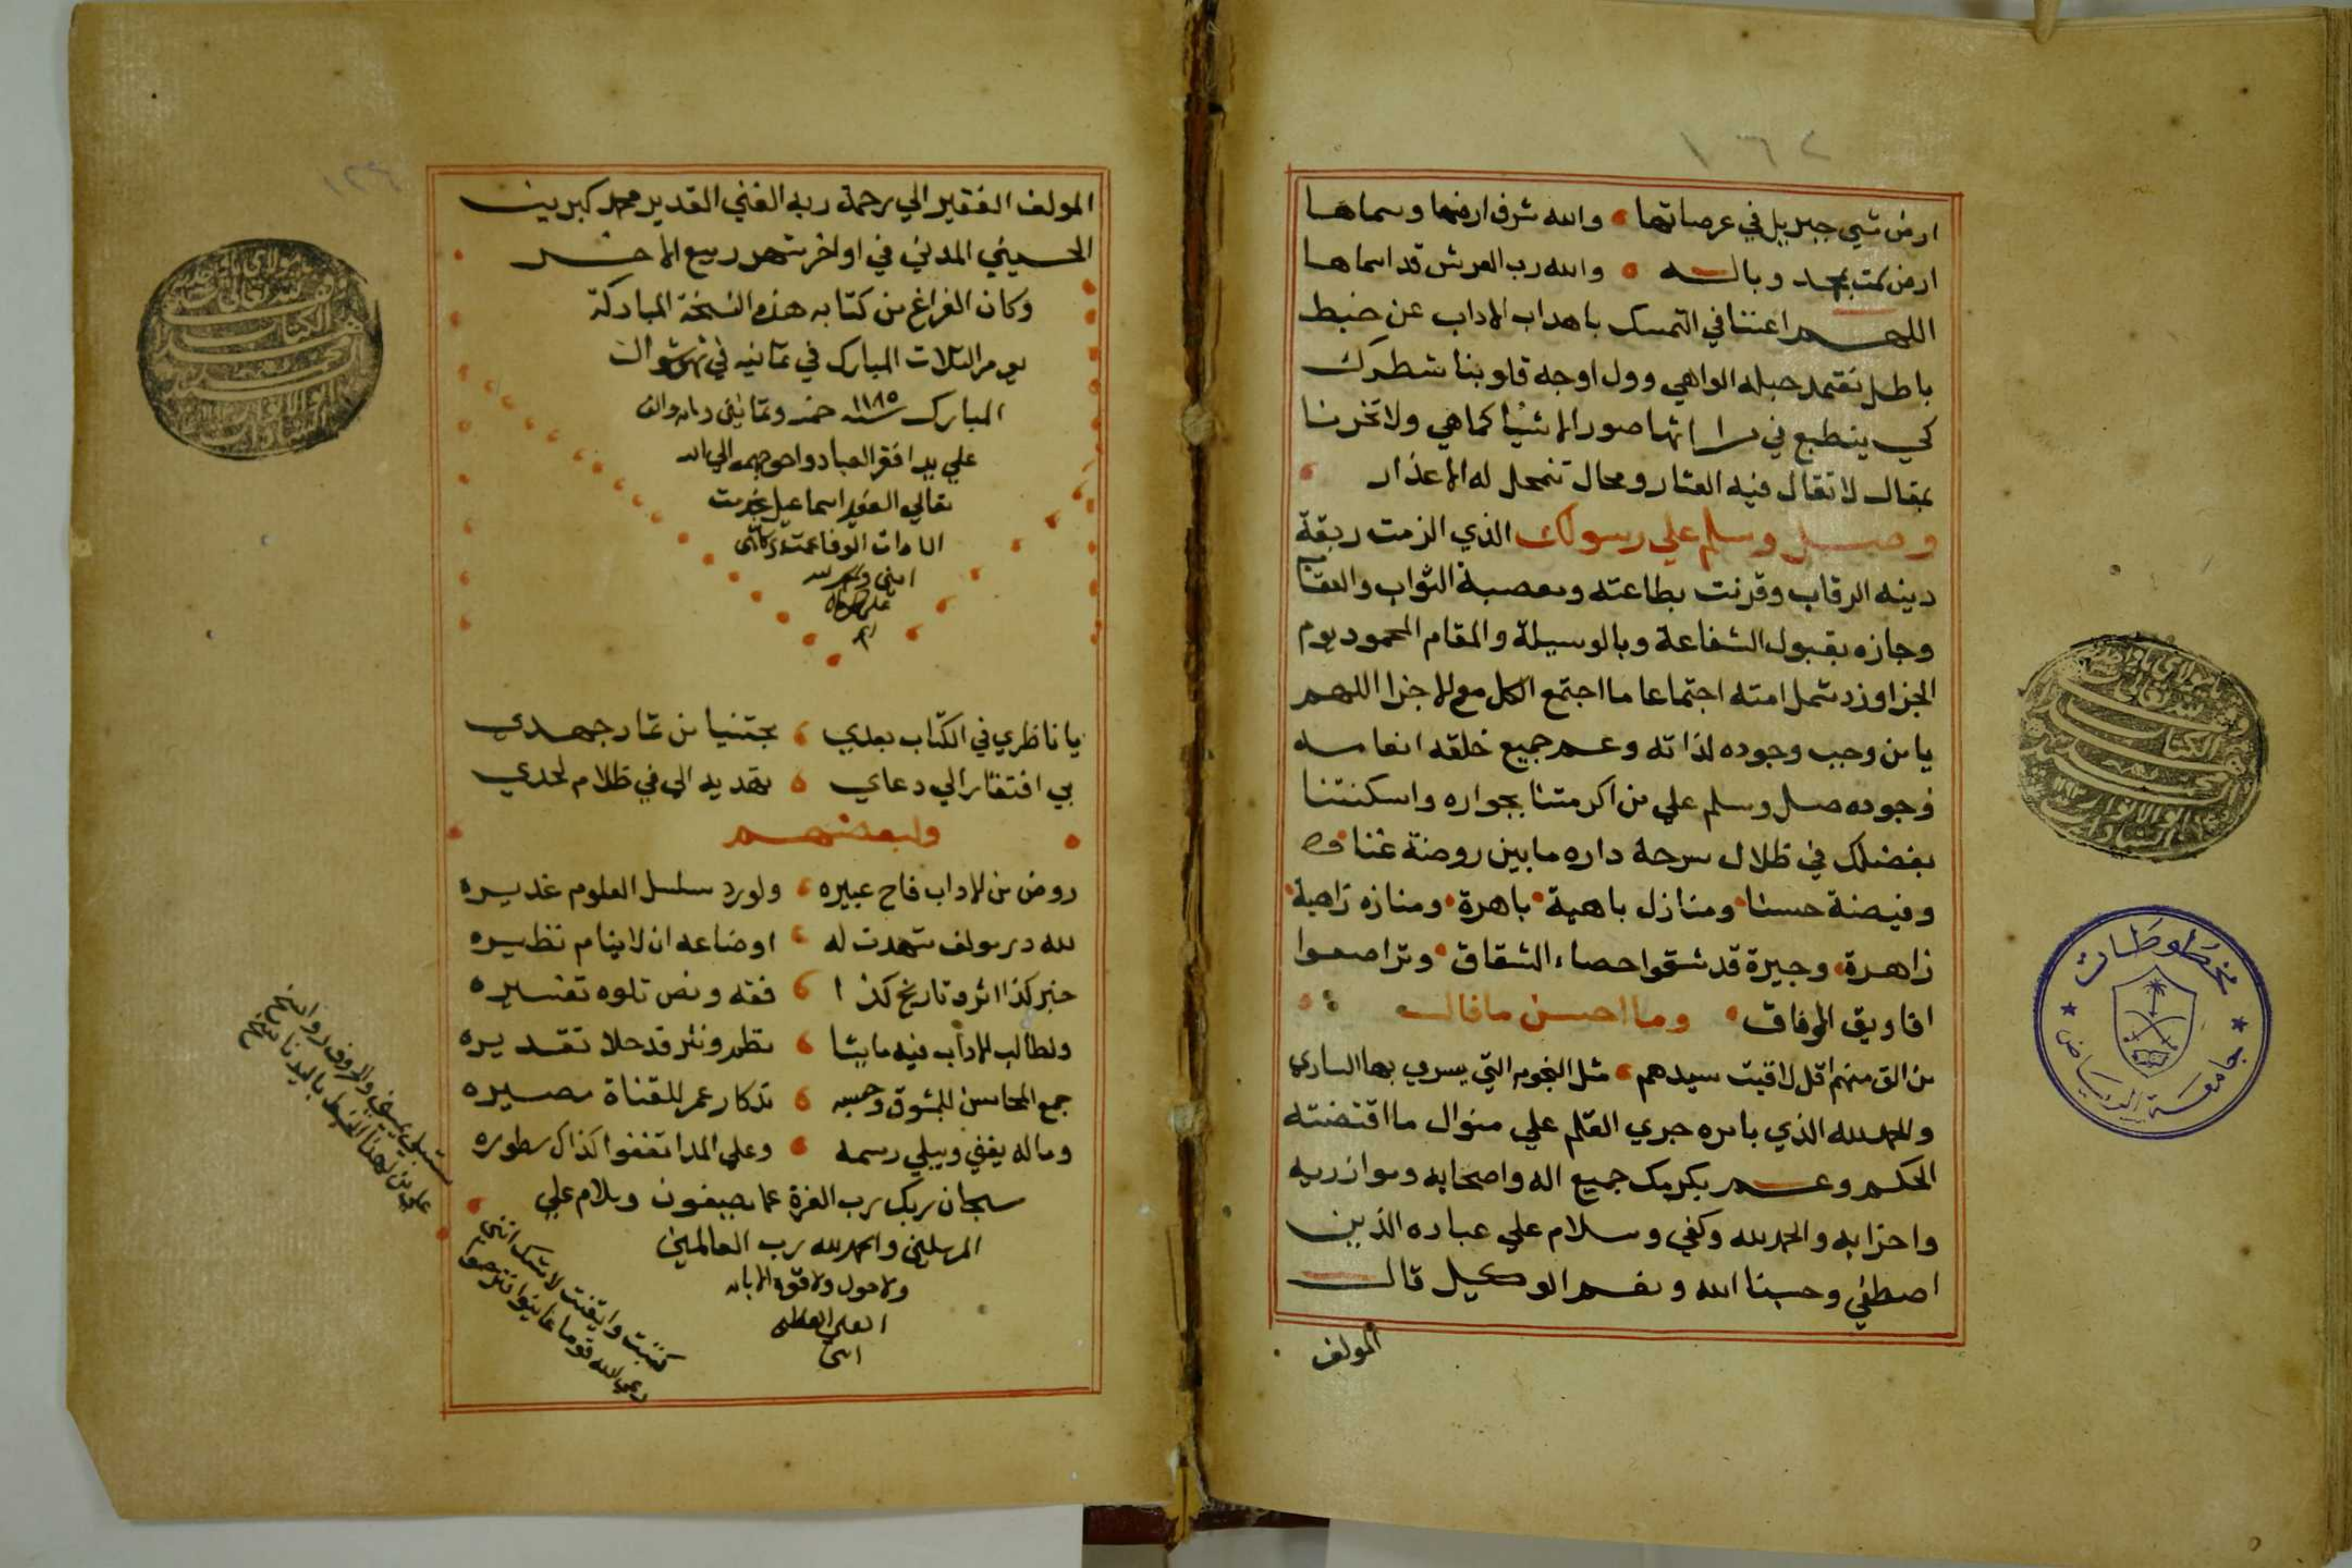 ارض مشي جبريل في عرصاتها والله شرف ارضها وسماها
ارض سمت بمحمد وباله والله رب العرش قد اسماها
اللهم اعننا في التمسك باهداب الاداب عن خبط
باطل نعتمد حبله الواهي وول اوجه قلوبنا شطرك
كي ينطبع في مراياتها صور الاشيا كما هي ولا تخزنا
بمقال لا تقال فيه العثار ومحال تنمحل له الاعذار
وصل وسلم علي رسولك الذي الزمت ربقة
دينه الرقاب وقرنت بطاعته ومعصية الثواب والعقاب
وجازه بقبول الشفاعة وبالوسيلة والمقام المحمود يوم
الجزا وزد شمل امته اجتماعا ما اجتمع الكل مع الاجزا اللهم
يا من وجب وجوده لذاته وعم جميع خلقه انعامه
وجوده صل وسلم علي من اكرمتنا بجواره واسكنتنا
بفضلك في ظلال سرحة داره ما بين روضة غنا
وفيضة حسنا ومنازل باهية باهرة ومنازه زاهية
زاهرة وجيرة قد شقوا حصاء الشقاق وتراضعوا
افاويق الوفاق وما احسن ما قال
من تلق منهم اقل لاقيت سيدهم مثل النجوم التي يسري بها الساري
والحمد لله الذي بامره جري القلم علي منوال ما اقتضته
الحكم وعم بكرمك جميع اله واصحابه وموازريه
واحزابه والحمد لله وكفي وسلام علي عباده الذين
اصطفي وحسبنا الله ونعم الوكيل قال
المولف
مخطوطات
جامعة الرياض
المولف الفقير الي رحمة ربه الغني القدير محمد كبريت
الحسيني المدني في اواخر شهر ربيع الاخر
وكان الفراغ من كتابه هذه النسخة المباركة
يوم الثلاث المبارك في ثمانيه في شهر شوال
المبارك سنة ١١٨٥ خمسه وثمانين ومايه والف
علي يد افقر العباد واحوجهم الي الله
تعالي الفقير اسماعيل
السادات الوفا
يا ناظري في الكتاب بعدي مجتنيا من ثمار جهدي
بي افتقار الي دعاي تهديه الي في ظلام لحدي
ولبعضهم
روض من الاداب فاح عبيره ولورد سلسل العلوم غديره
لله در مولف شهدت له اوضاعه ان لا ينام نظيره
خبر كذا اثر وتاريخ كذا فقه ونص تلوه تفسيره
ولطالب الاداب فيه ما يشا نظم ونثر قد حلا تقديره
جمع المحاسن للمشوق وحسبه تذكار عمر للقناة مصيره
وماله يفني ويبلي رسمه وعلي المدا تغفوا كذاك سطوره
سبحان ربك رب العزة عما يصيفون وسلام علي
المرسلين والحمد لله رب العالمين
ولا حول ولا قوة الا بالله
العلي العظيم
كتبت وايقنت لا شك انني
ستبلي يميني والحروف